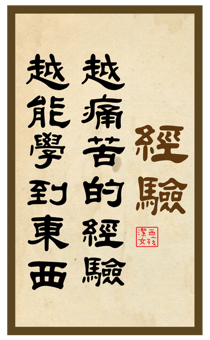 經驗
越痛苦的經驗
越能學到東西